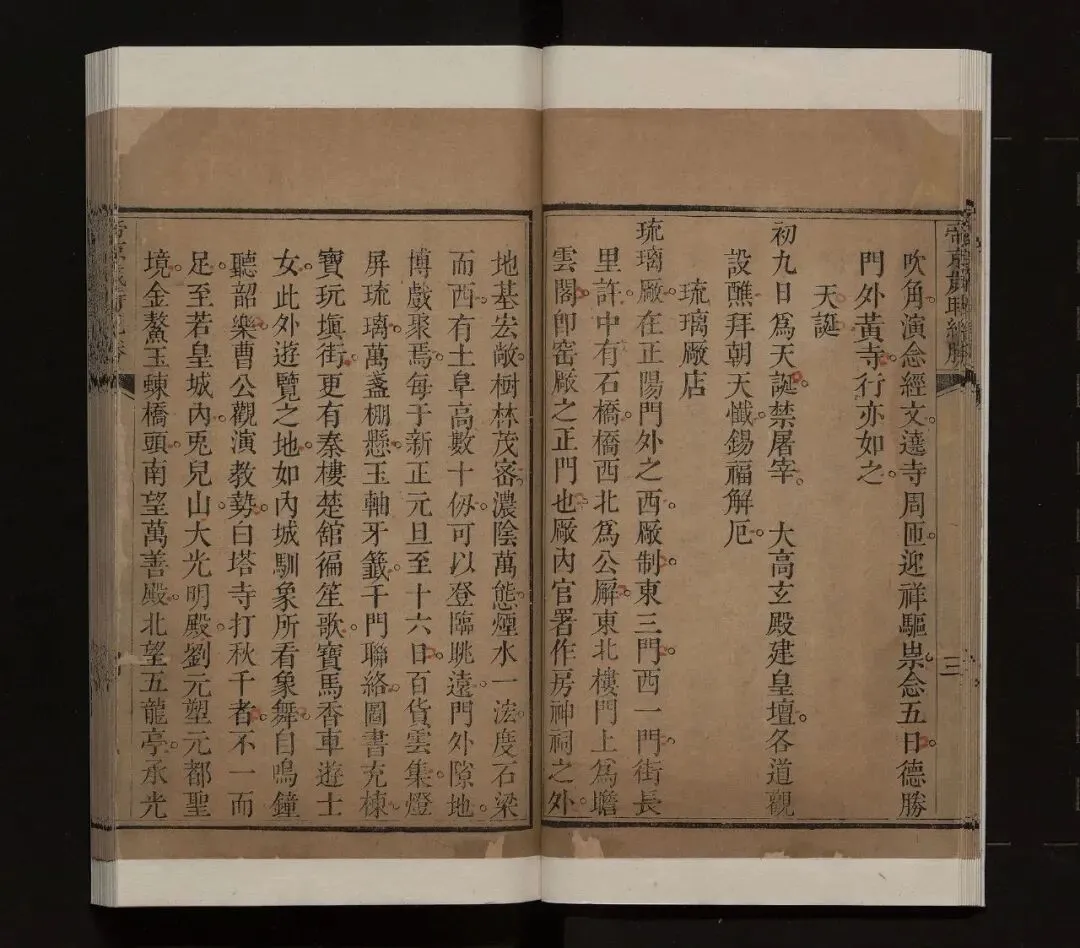 帝京歲時紀勝
三
吹角演念經文遶寺周匝迎祥驅祟念五日德勝
門外黃寺行亦如之
天誕
初九日為天誕禁屠宰 大高玄殿建皇壇各道觀
設醮拜朝天懺錫福解厄
琉璃厰店
琉璃厰在正陽門外之西厰制東三門西一門街長
里許中有石橋橋西北為公廨東北樓門上為瞻
雲閣即窑厰之正門也厰內官署作房神祠之外
地基宏敞樹林茂密濃陰萬態煙水一泓度石梁
而西有土阜高數十仞可以登臨眺遠門外隙地
博戲聚焉每于新正元旦至十六日百貨雲集燈
屏琉璃萬盞棚懸玉軸牙籤千門聯絡圖書充棟
寶玩塡街更有秦樓楚舘徧笙歌寶馬香車遊士
女此外遊覽之地如內城馴象所看象舞自鳴鐘
聽韶樂曹公觀演教勢白塔寺打秋千者不一而
足至若皇城內兎兒山大光明殿劉元塑元都聖
境金鰲玉蝀橋頭南望萬善殿北望五龍亭承光